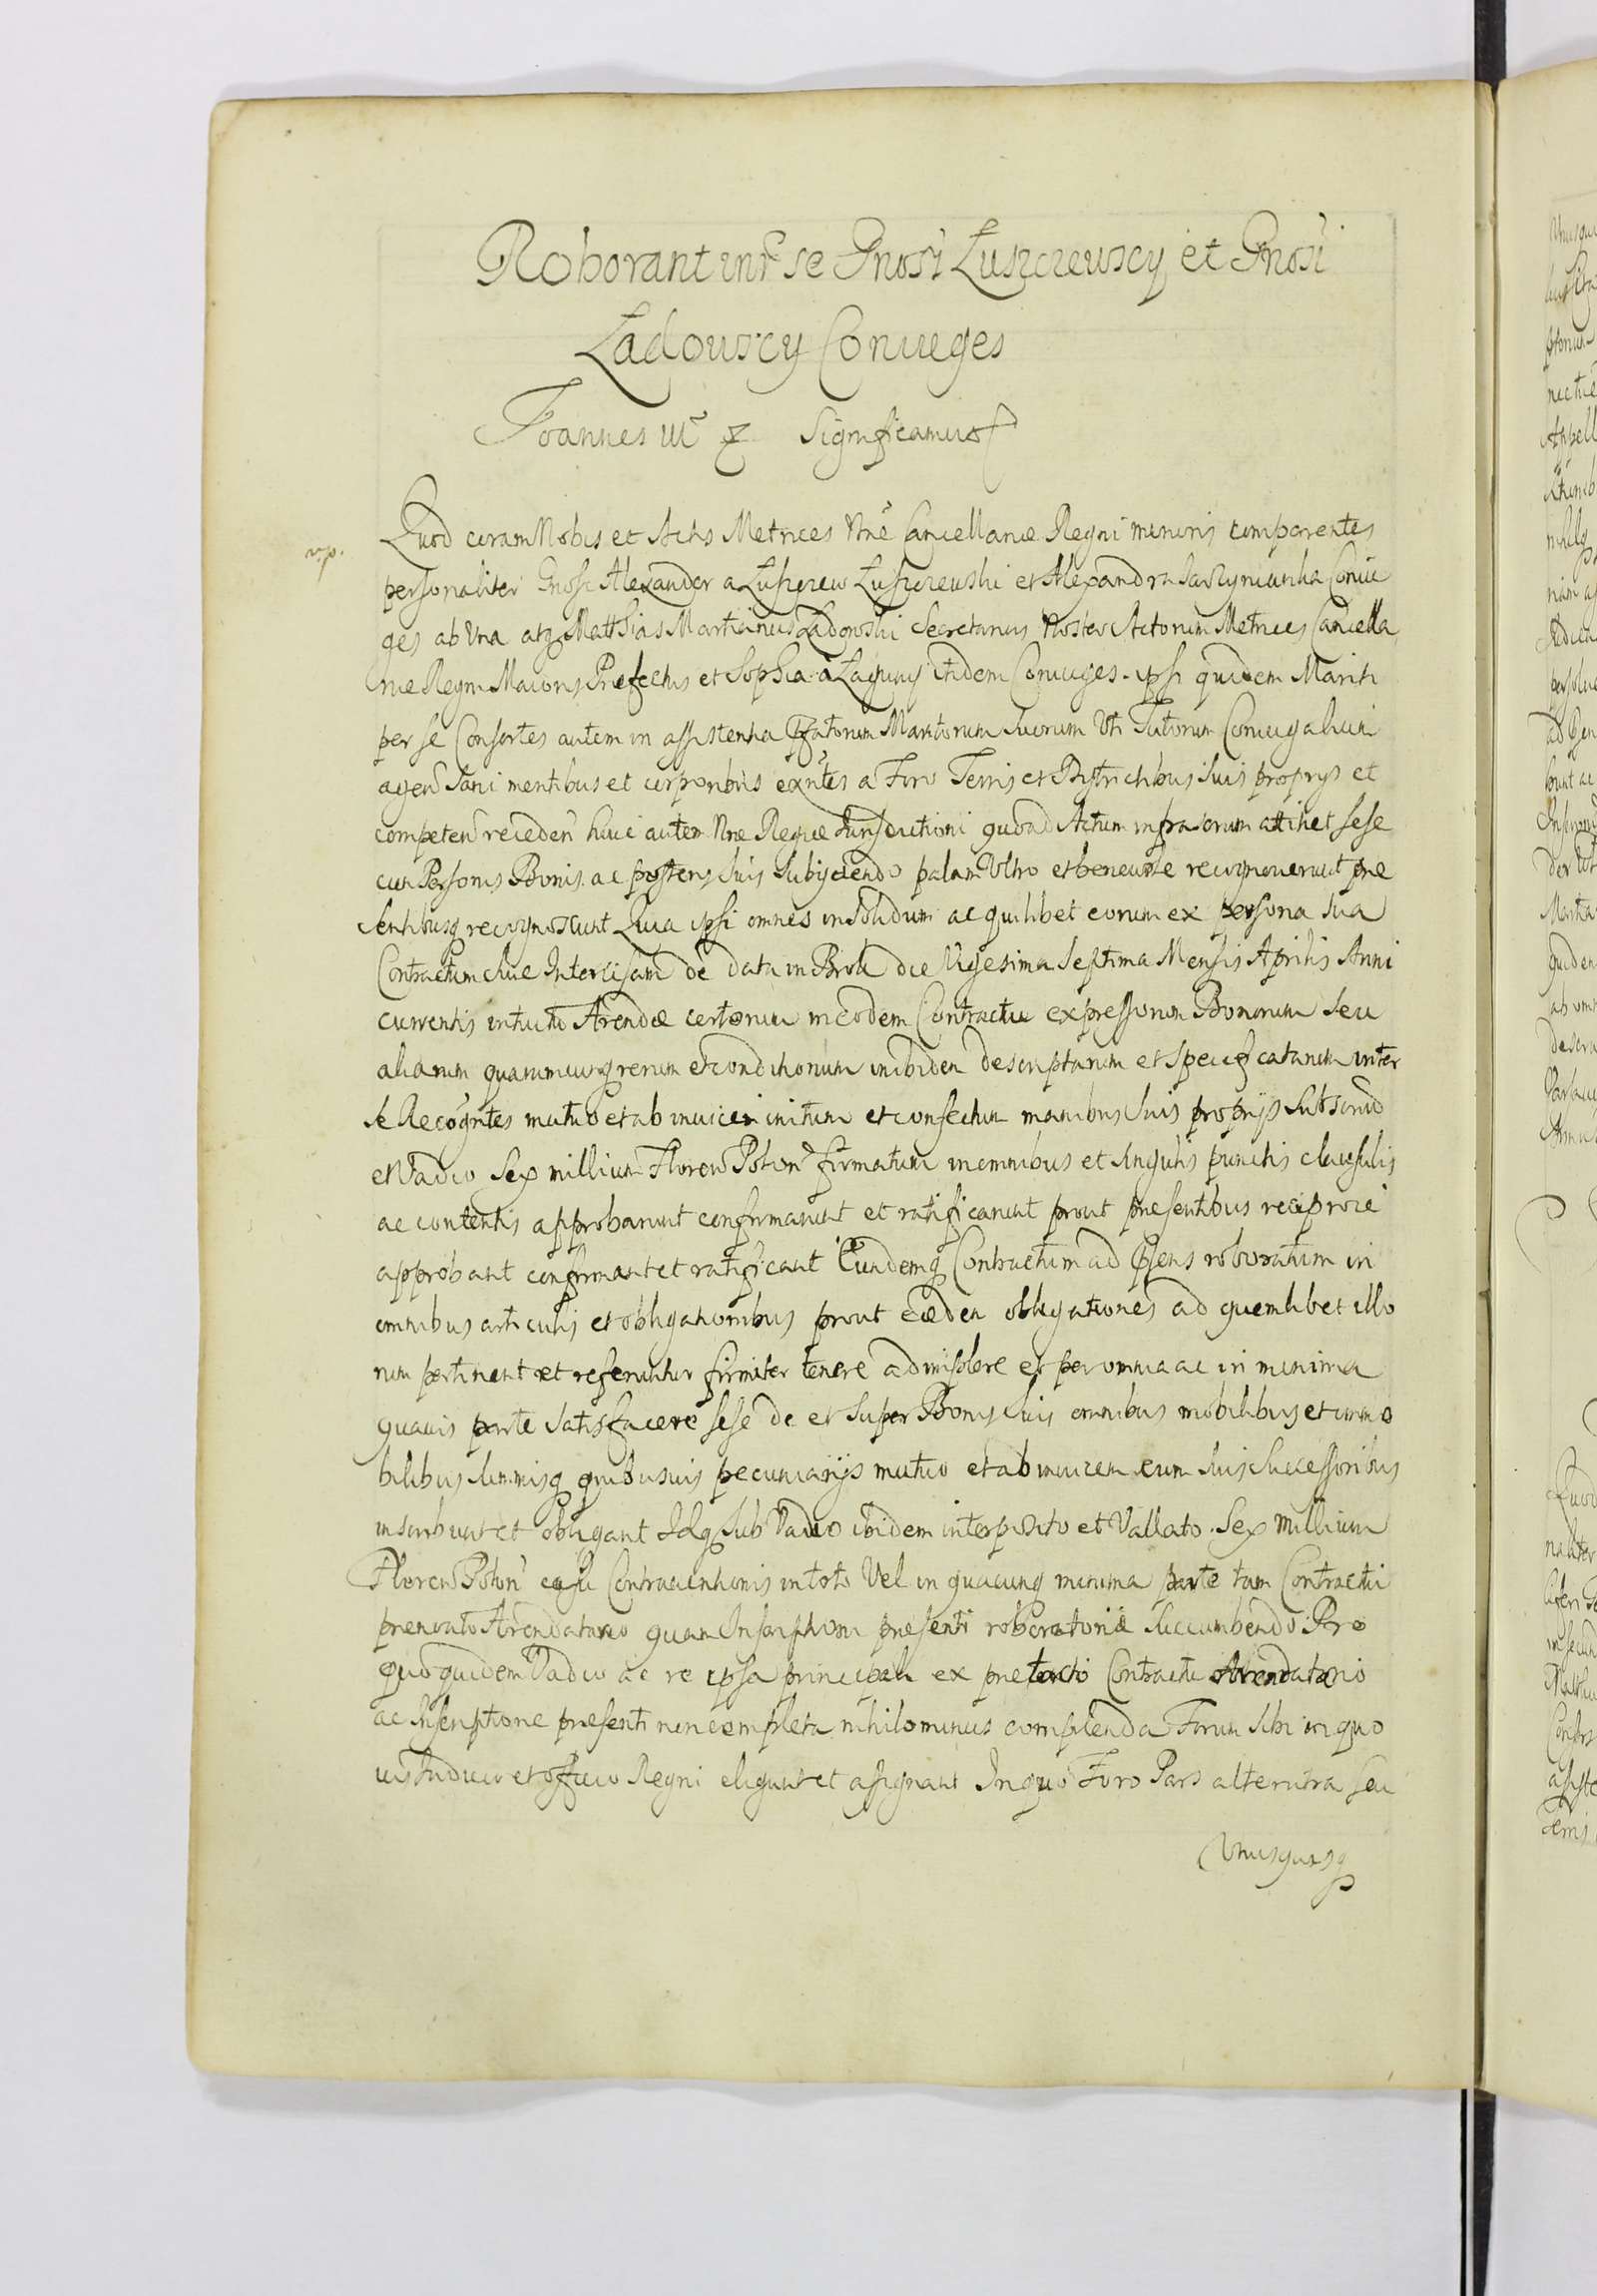 Roborant inr̃ se Gnosi Łuszczewscy et Gnosi
Ładowscy Coniuges
Joannes IIĨ & Significamus
v.p.
Quod coram Nobis et Actis Metrices Nrẽ Cancellariæ Regni minoris comparentes
personaliter Gnosi Alexander a Łuszczew Łuszczewski et Alexandra Coniu
ges ab Vna atq Matthias Martianus Ładowski Secretarius Noster Actorum Metrices Cancella
riæ Regni Maioris Præfectus et Sophia à Laguny itidem Coniuges. ipsi quidem Mariti
per se Consortes autem in assistentia Pfatorum Maritorum suorum Vti Tutorum Coniugalium
agen̄ Sani mentibus et corporibus exñtes a Foro Terris et Dystrictibus suis proprys et
competen̄ receden̄ huic autem Nrẽ Regiæ Jurisdictioni quoad Actum infrascrum attinet sese
cum Personis Bonis ac posteris suis subijciendo palam Vltro et benevole recognoverunt præ
sentibusq recognoscunt Quia ipsi omnes in solidum ac quilibet eorum ex persona sua
Contractum siue Intercisam de data in Brok die Vigesima Septima Mensis Aprilis Anni
currentis intuitu Arendæ certorum in eodem Contractu expressorum Bonorum seu
aliarum quarumcunq rerum et conditionum inibidem descriptarum et specificatarum inter
se Recogñtes mutuo et ab inuicem initum et confectum manibus suis proprijs subscrip̃
et Vadio Sex millium Floren̄ Polon̄ firmatum in omnibus et singulis punctis clausulis
ac contentis approbarunt confirmarunt et ratificarunt prout præsentibus reciproce
approbant confirmant et ratificant Eundemq Contractum ad Psens roboratum in
omnibus articulis et obligationibus prout eædem obligationes ad quemlibet illo
rum pertinent et referuntur firmiter tenere adimplere et per omnia ac in minima
quauis parte satisfacere sese de et super Bonis suis omnibus mobilibus et immo
bilibus summisq quibusuis pecuniarijs mutuo et ab inuicem cum suis Successoribus
inscribunt et obligant Idq sub Vadio ibidem interposito et Vallato. Sex Millium
Floren̄ Polon̄ casu Contrauentionis in toto Vel in quacunq minima parte tam Contractui
prænotato Arendatorio quam Inscriptioni præsenti roboratoriæ succumbendo Pro
quo quidem Vadio ac re ipsa principali ex prætacto Contractu Arendatorio
ac Inscriptione præsenti non completa nihilominus complenda Forum sibi in quo
uis Judicio et officio Regni eligunt et assignant In quo Foro Pars alterutra seu
Vnusquisq